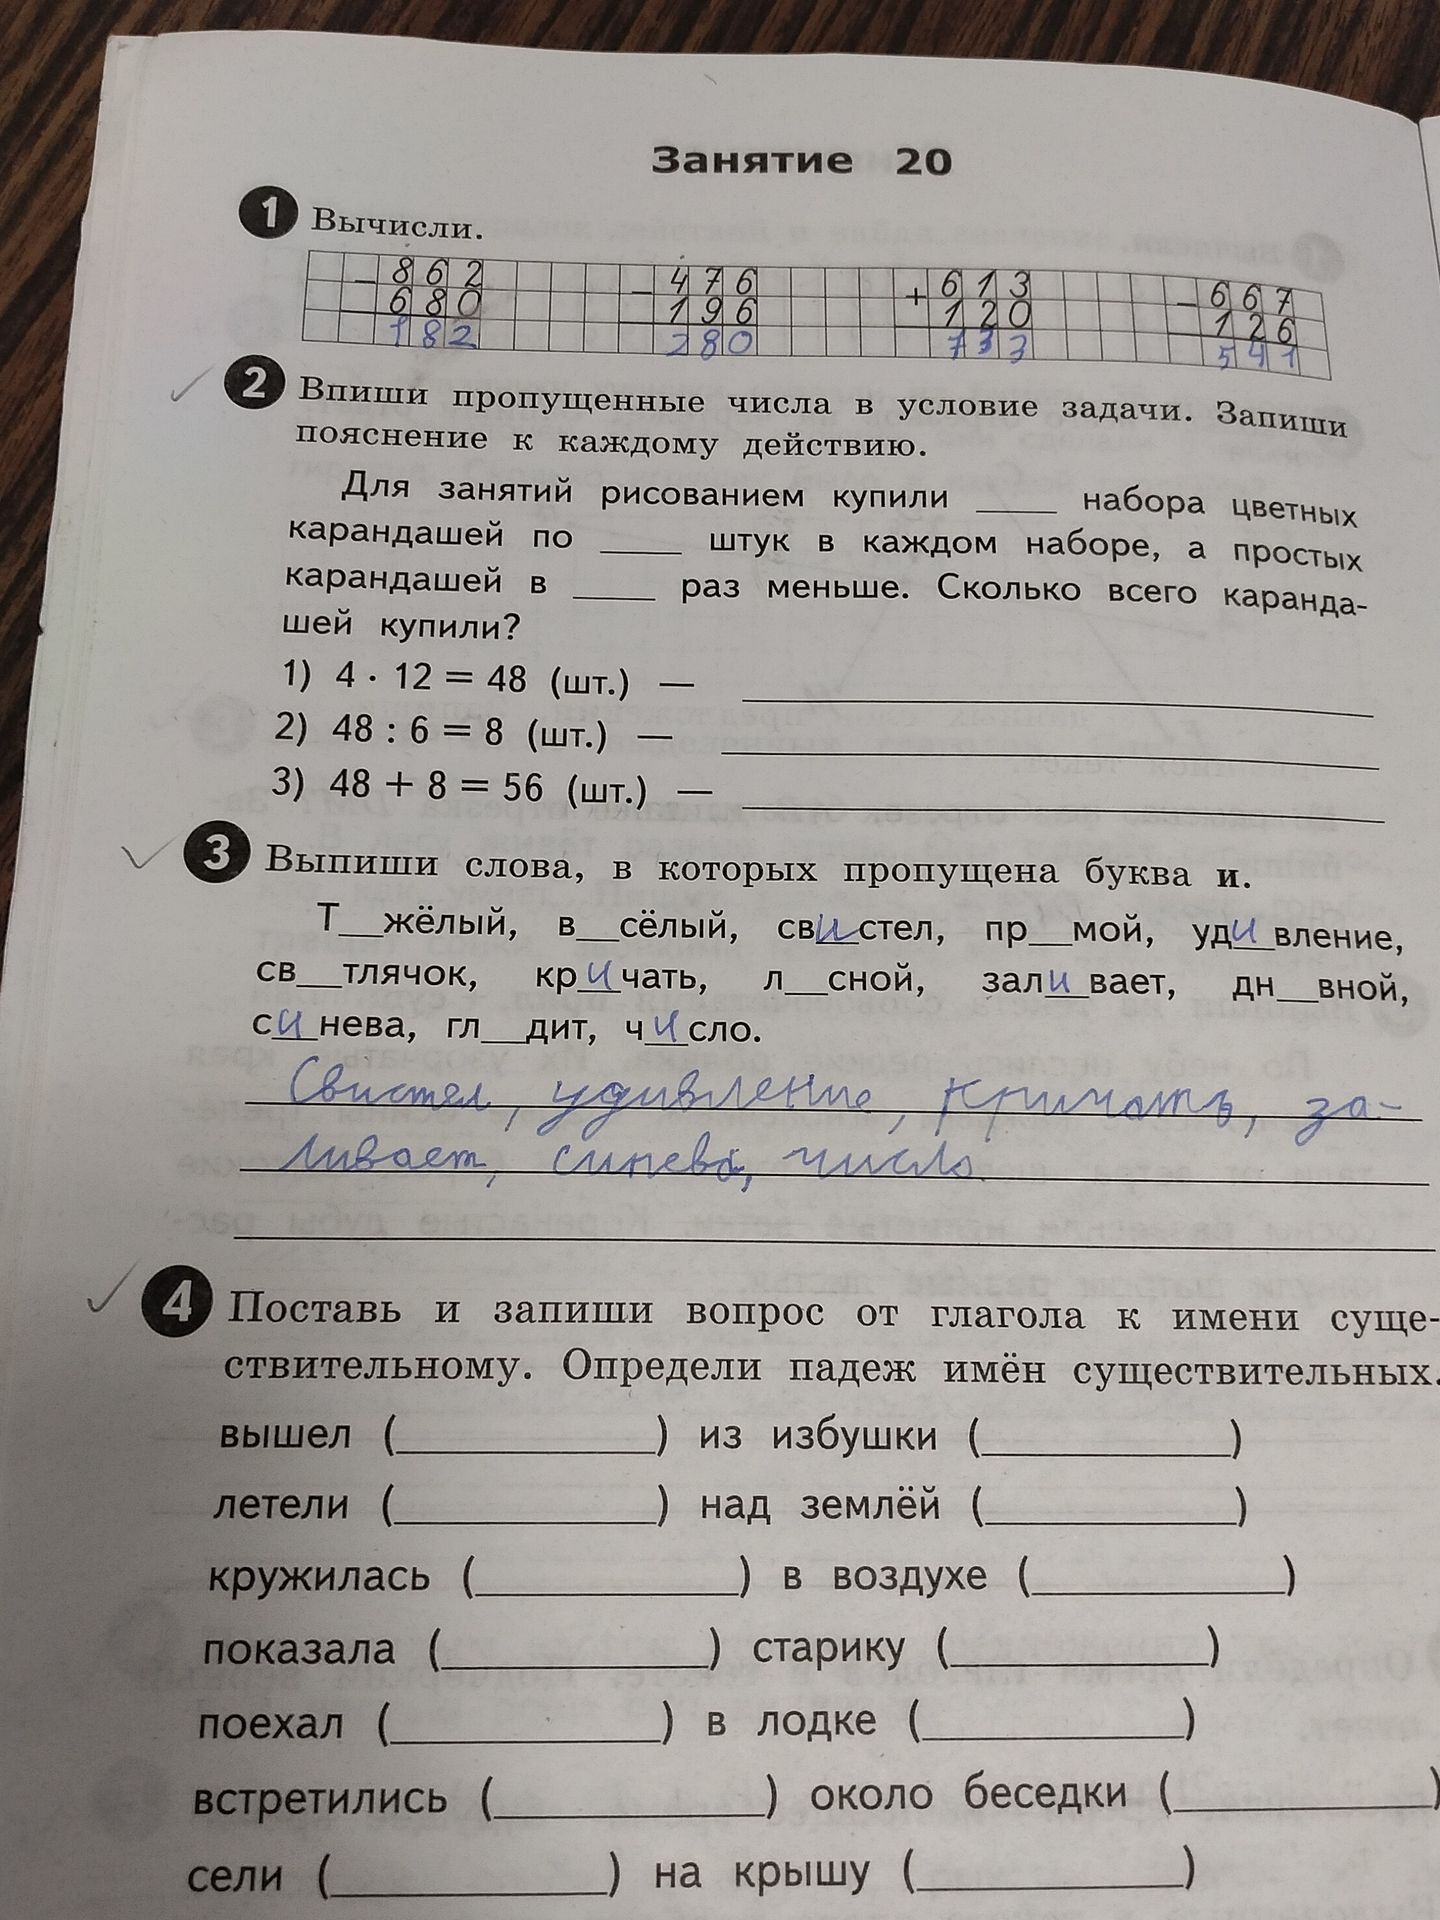 Занятие 20
1 Вычисли.
− 862 − 476 + 613 − 667
680 196 120 126
182 280 733 541
2 Впиши пропущенные числа в условие задачи. Запиши
пояснение к каждому действию.
Для занятий рисованием купили ____ набора цветных
карандашей по ____ штук в каждом наборе, а простых
карандашей в ____ раз меньше. Сколько всего каранда-
шей купили?
1) 4 · 12 = 48 (шт.) — ____
2) 48 : 6 = 8 (шт.) — ____
3) 48 + 8 = 56 (шт.) — ____
3 Выпиши слова, в которых пропущена буква и.
Т__жёлый, в__сёлый, свистел, пр__мой, удивление,
св__тлячок, кричать, л__сной, заливает, дн__вной,
синева, гл__дит, число.
Свистел, удивление, кричать, за-
ливает, синева, число.
4 Поставь и запиши вопрос от глагола к имени суще-
ствительному. Определи падеж имён существительных.
вышел (____) из избушки (____)
летели (____) над землёй (____)
кружилась (____) в воздухе (____)
показала (____) старику (____)
поехал (____) в лодке (____)
встретились (____) около беседки (____)
сели (____) на крышу (____)